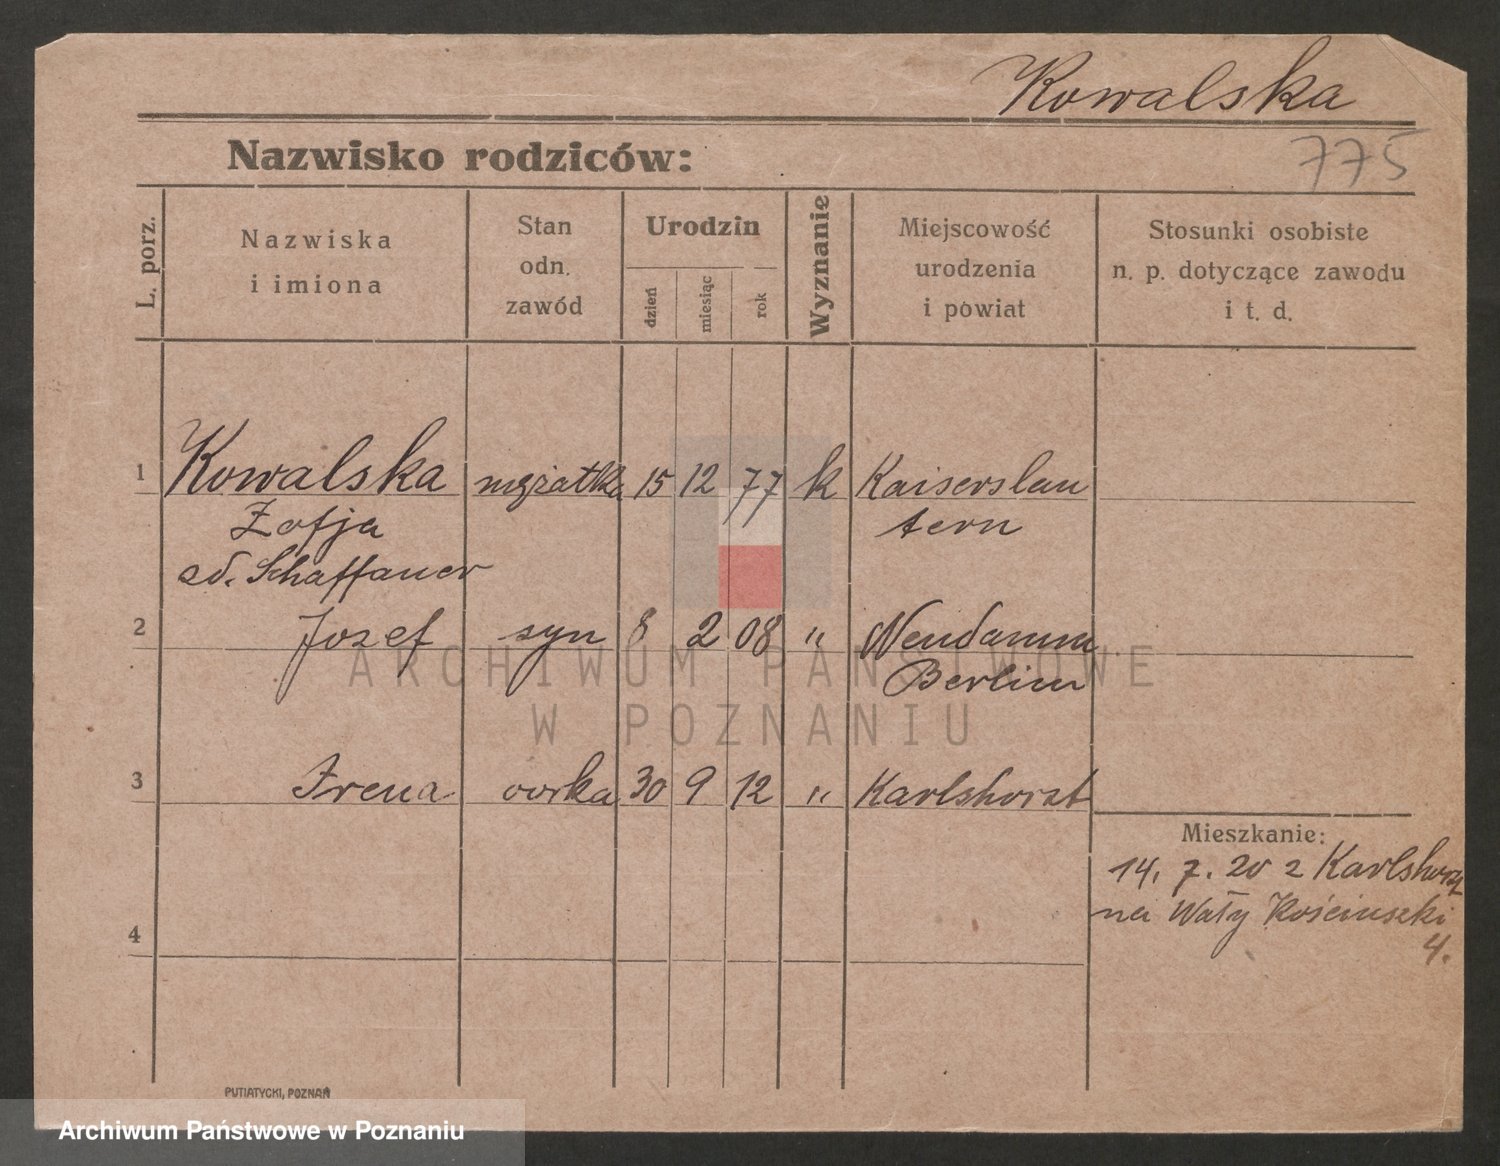 Kowalska
775
Nazwisko rodziców:
L. porz.
Nazwiska
i imiona
Stan
odn.
zawód
Urodzin
dzień
miesiąc
rok
Wyznanie
Miejscowość
urodzenia
i powiat
Stosunki osobiste
n. p. dotyczące zawodu
i t. d.
1 Kowalska mężatka 15 12 77 k Kaiserslau
Zofja tern
sd. Schaffauer
2 Jozef syn 8 2 08 " Neudamm
Berlin
3 Irena corka 30 9 12 " Karlshorst
Mieszkanie:
14. 7. 20 z Karlshorst
na Wały Kościuszki
4.
4
ARCHIWUM PAŃSTWOWE
W POZNANIU
PUTIATYCKI, POZNAŃ
Archiwum Państwowe w Poznaniu